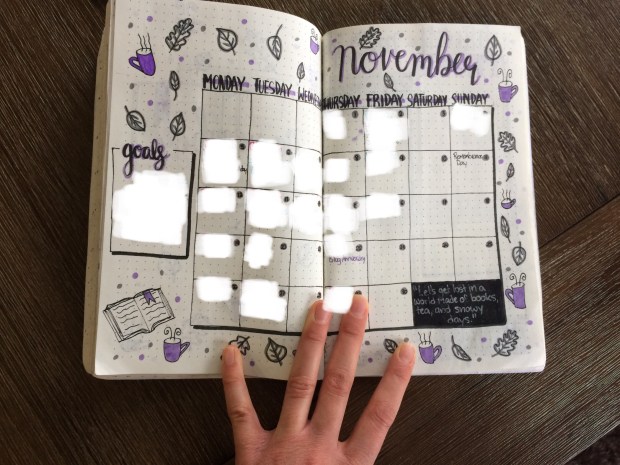 November
MONDAY TUESDAY THURSDAY FRIDAY SATURDAY SUNDAY
goals
Remembrance
Day
Anniversary
"Let's get lost in a
world made of books,
tea, and snowy
days."